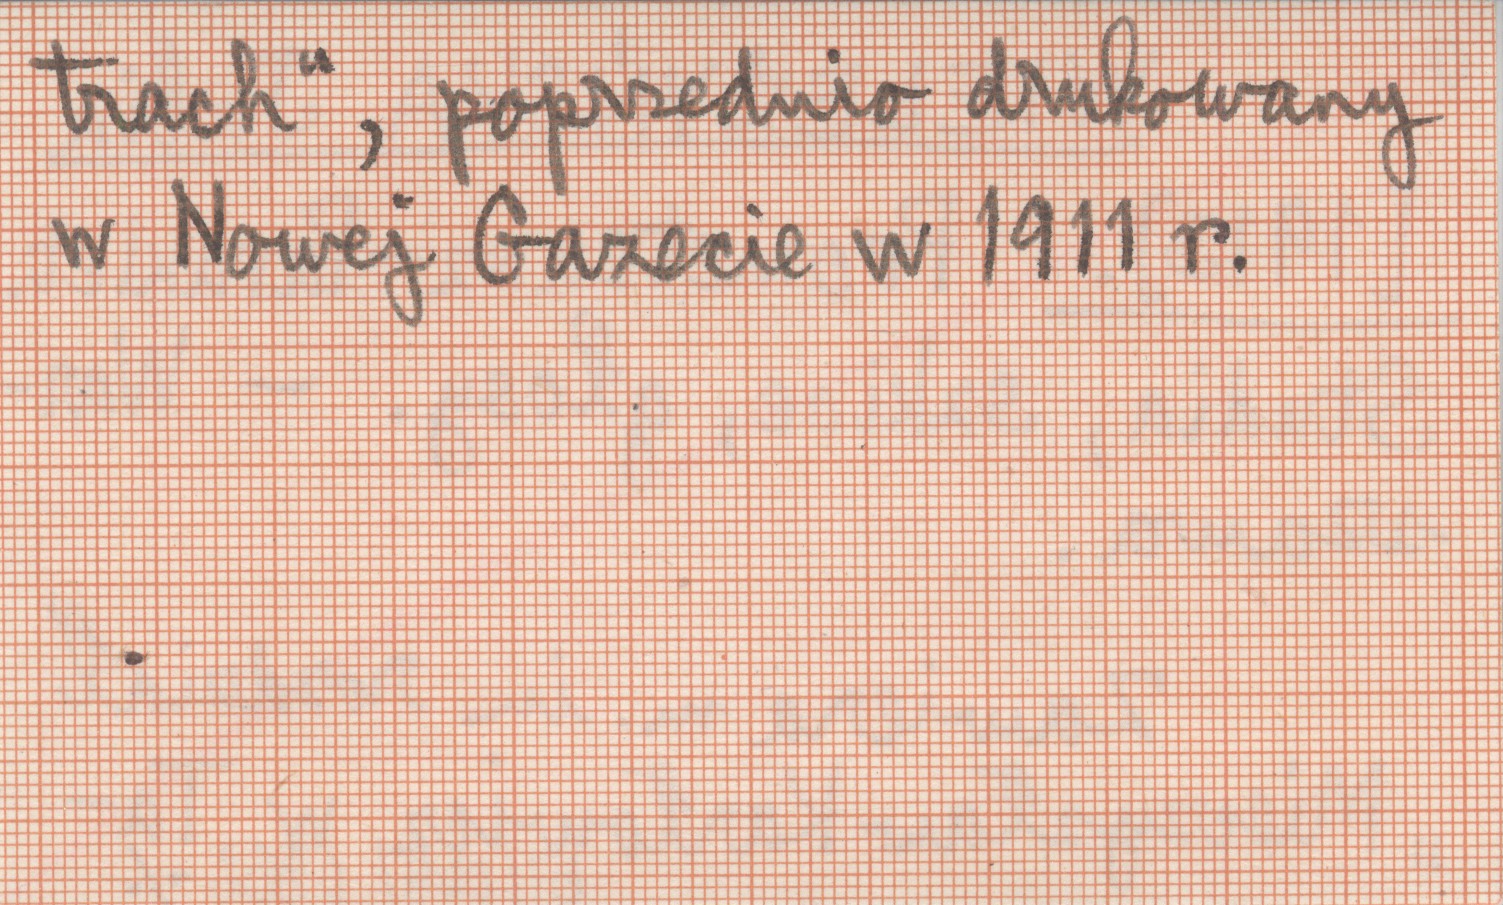 trach", poprzednio drukowany
w Nowej Gazecie w 1911 r.